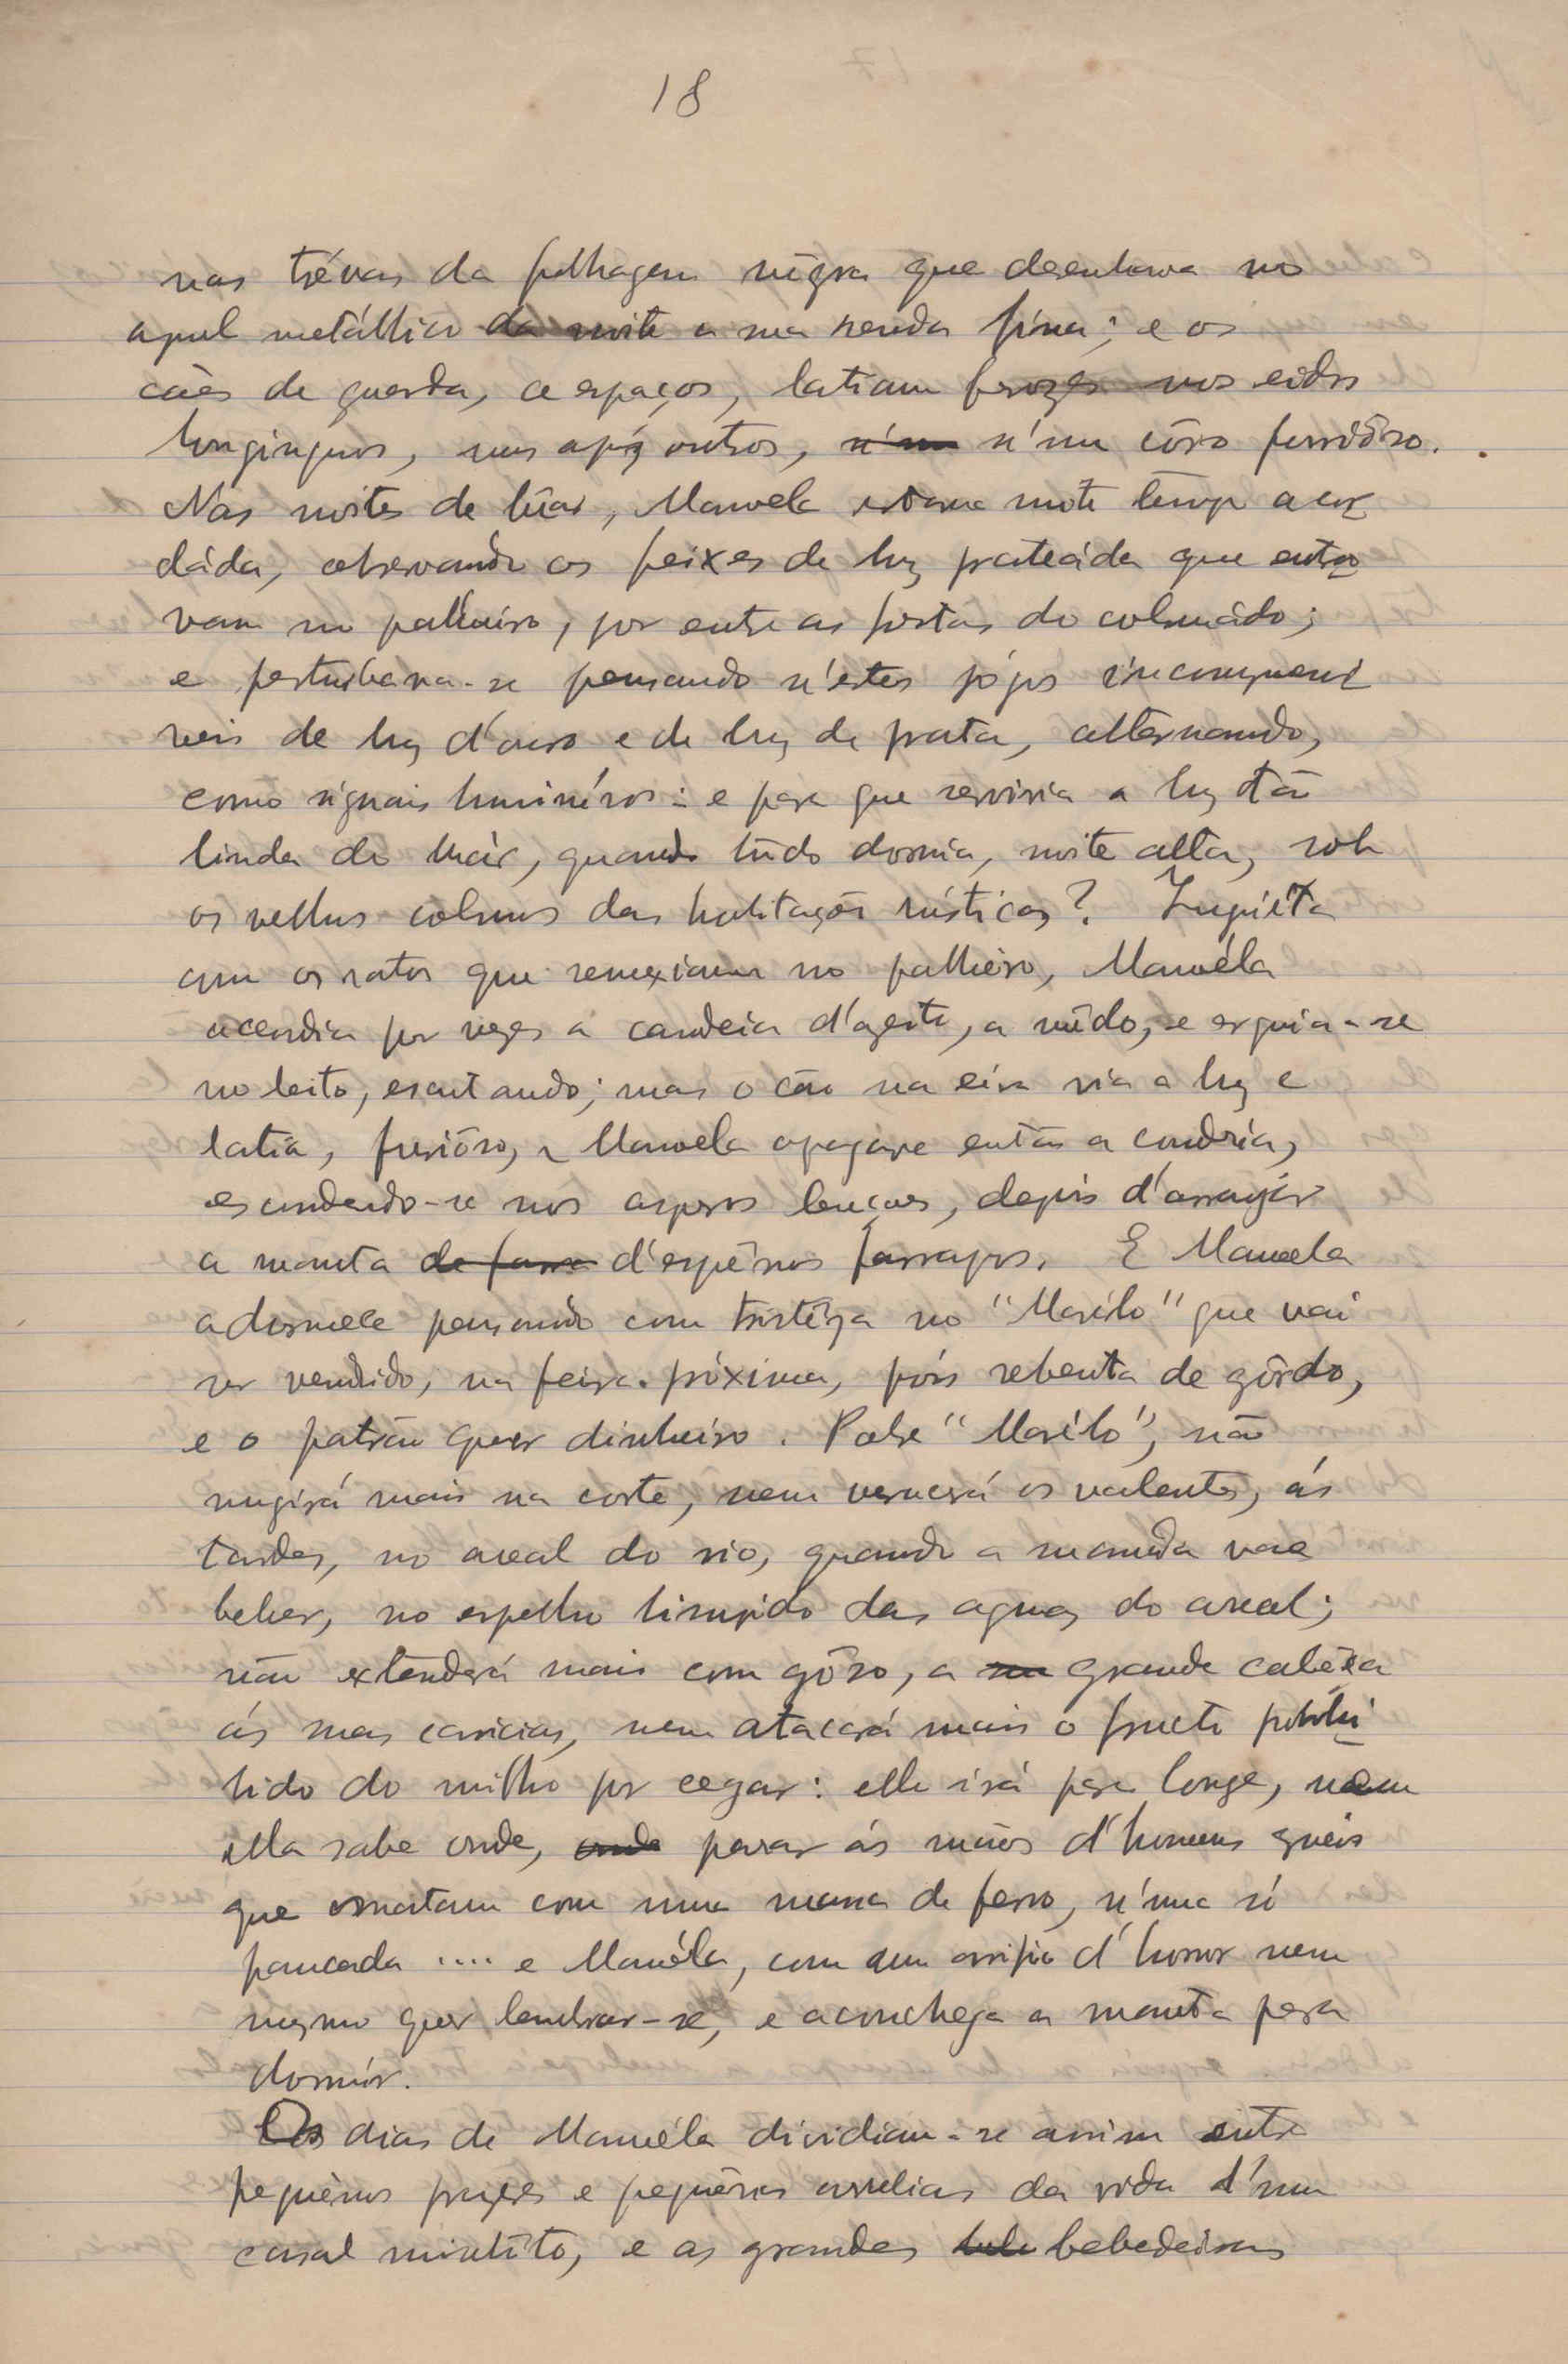 18
nas trévas da folhagem nêgra que desenhava no
azul metállico da noite a sua renda fina; e os
cães de guarda, a espaços, latiam ferozes nos eidos
longinquos, uns após outros, n'um n'um côro furiôso.
Nas noites de lúar, Manuela estava muito tempo acor
dáda, observando os feixes de luz prateáda que entra
vam no palheiro, por entre as frestas do colmádo;
e perturbava-se pensando n'estes jógos incomprensi
veis de luz d'ouro e de luz de prata, alternando,
como signais luminósos: e para que serviria a luz tão
linda do luár, quando túdo dormia, noite alta, sob
os velhos colmos das habitações rústicas? Inquiéta
com os ratos que remexiam no palheiro, Manuéla
acendia por vezes a candeia d'azeite, a mêdo, e erguia-se
no leito, escutando; mas o cão na eira via a luz e
latia, furiôso, e Manuela apagava então a candeia,
escondendo-se nos asperos lençoes, depois d'arranjár
a manta de farra d'espêssos farrapos. E Manuela
adormece pensando com tristêza no "Marêlo" que vai
ser vendido, na feira próxima, póis rebenta de gôrdo,
e o patrão quer dinheiro. Pobre "Marêlo", não
mugirá mais na corte, nem vencerá os valentes, ás
tardes, no areal do rio, quando a manada vae
beber, no espelho limpido das aguas do areal;
não extenderá mais com gôso, a su grande cabêça
ás suas caricias, nem atacará mais o fructo prohi
bido do milho por cegar: elle irá para longe, nem
ella sabe onde, onde parar ás mãos d'homens crueis
que o matam com uma massa de ferro, n'uma só
pancada .... e Manuéla, com um arripio d'horror nem
mesmo quer lembrar-se, e aconchega a manta para
dormir.
Os dias de Manuéla dividiam-se assim entre
pequênos prazeres e pequênas arrelias da vida d'um
casal minhôto, e as grandes bebe bebedeiras